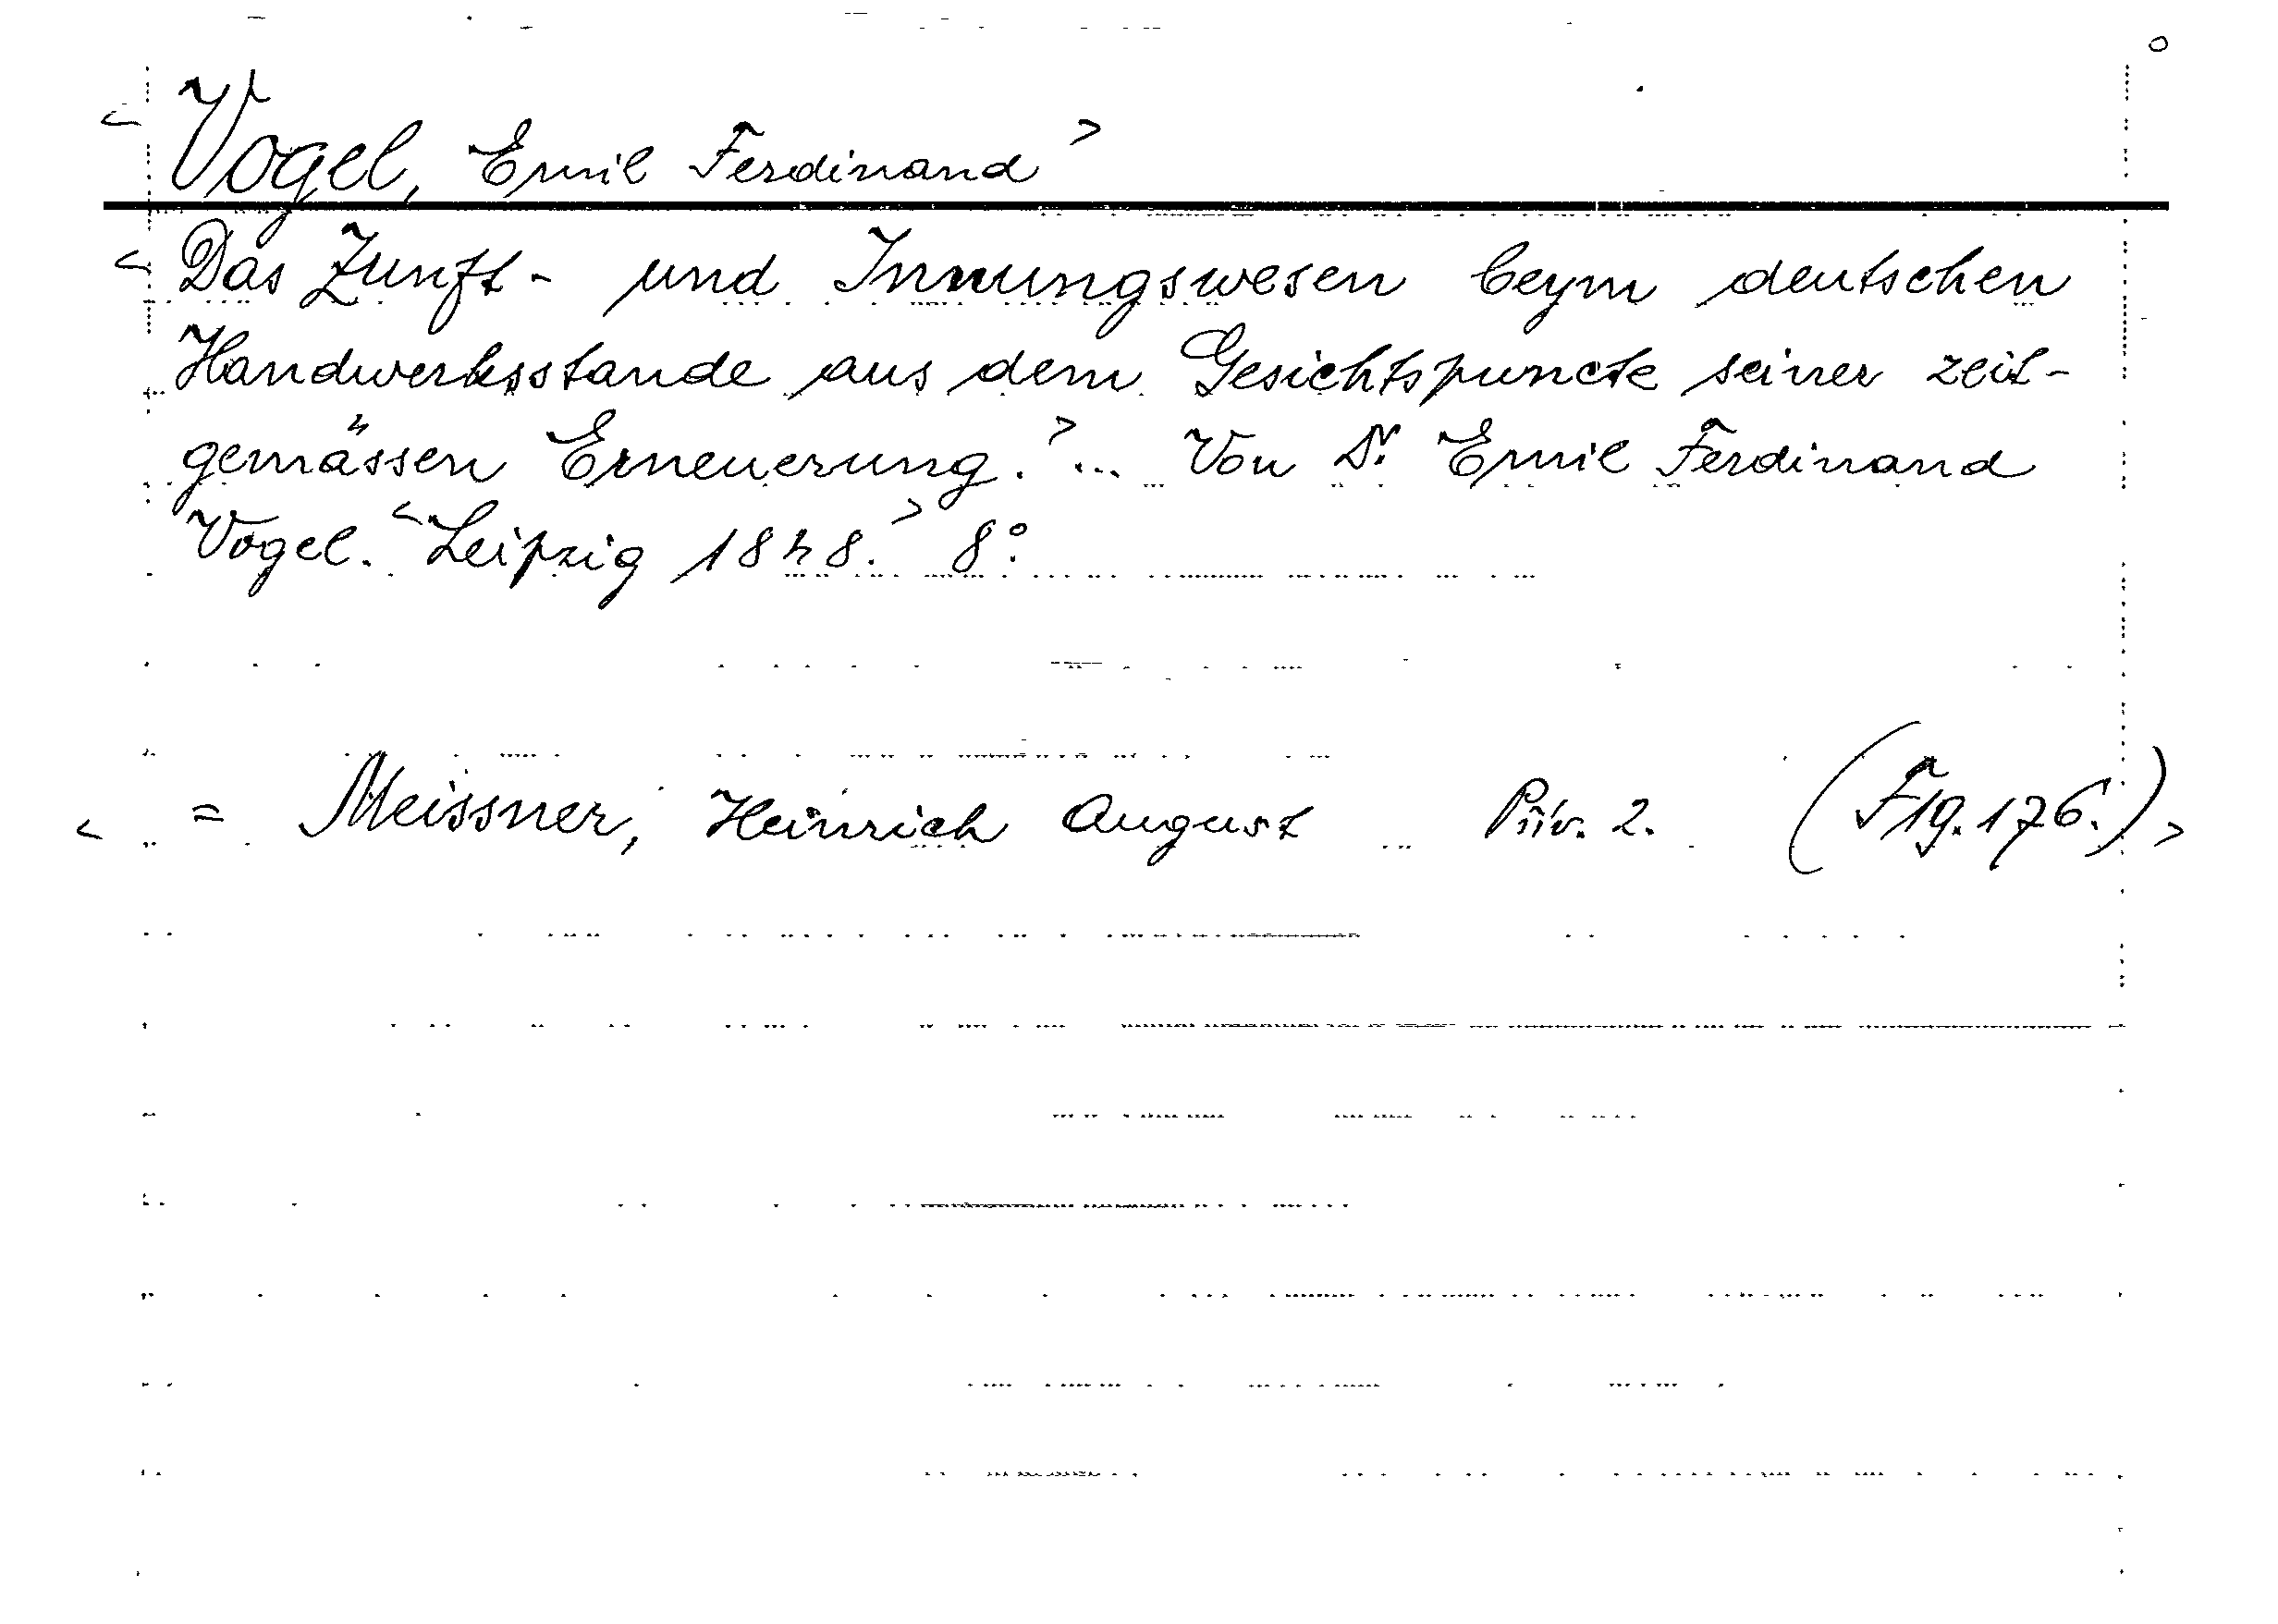 <Vogel, Emil Ferdinand>
<Das Zunft- und Innungswesen beym deutschen
Handwerksstande aus dem Gesichtspuncte seiner zeit-
gemässen Erneuerung.> ... Von Dr. Emil Ferdinand
Vogel. <Leipzig 1848.> 8°.
< = Meissner, Heinrich August Priv. 2. (F19.176.)>